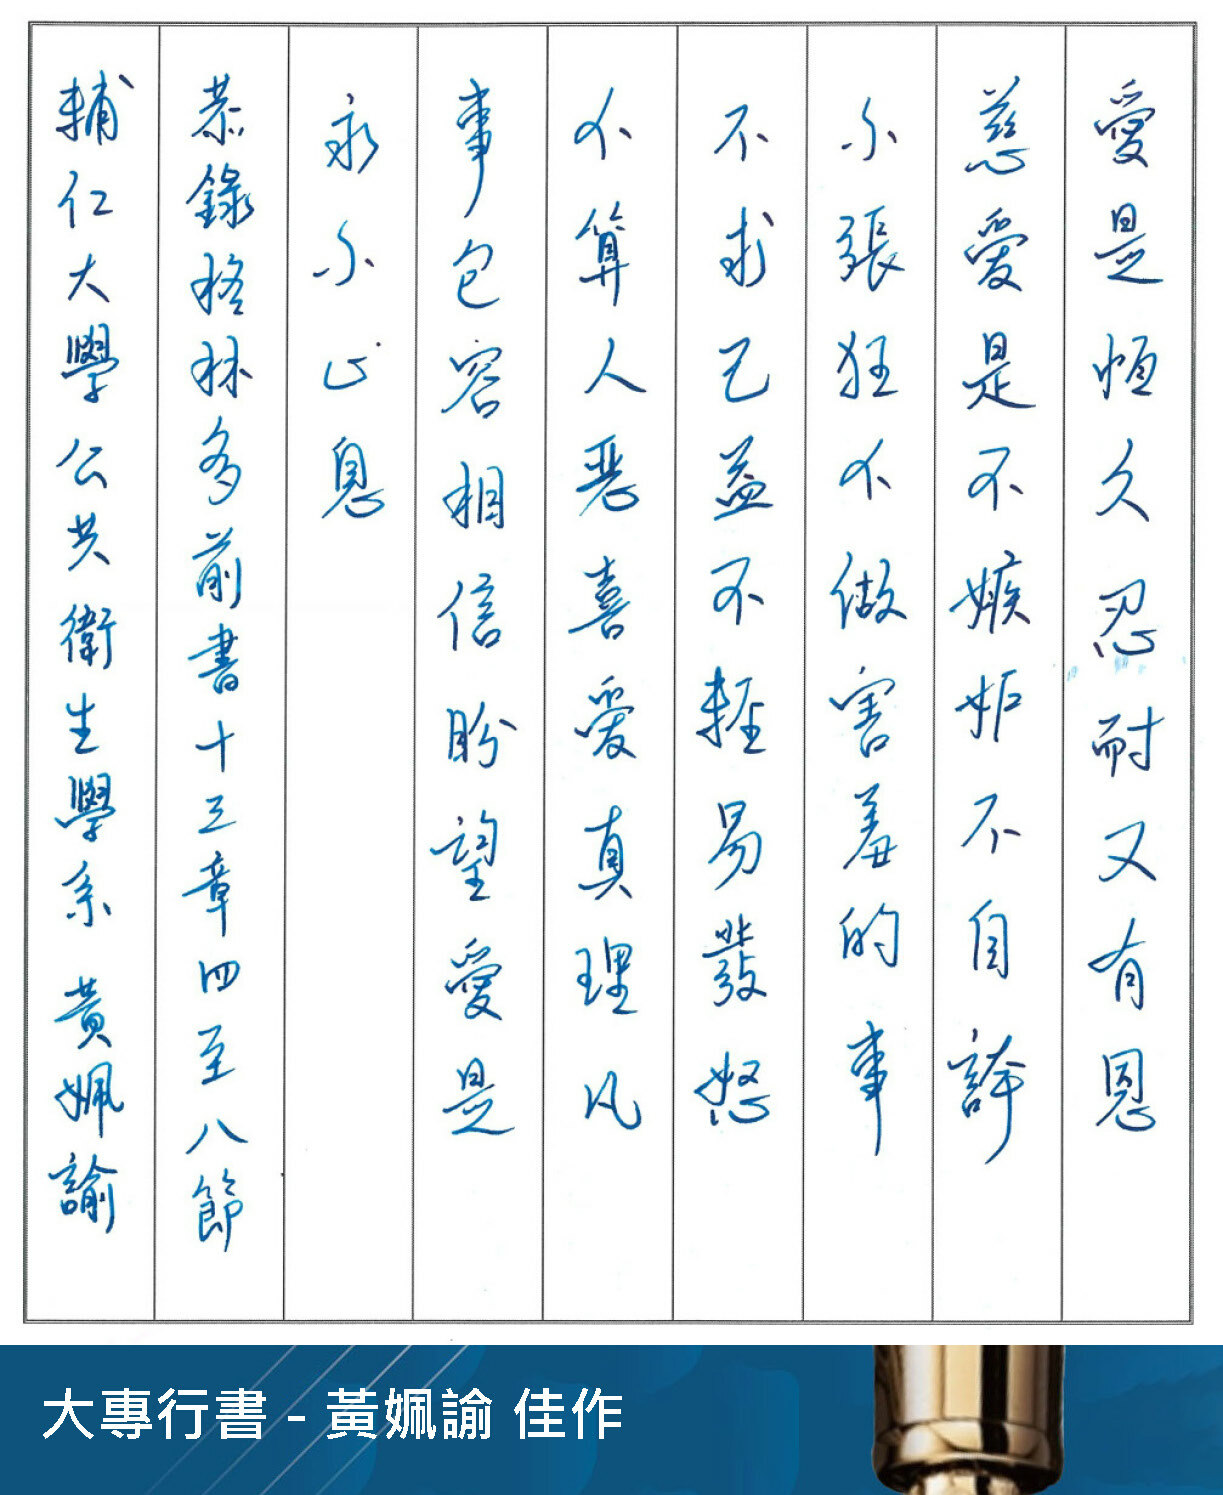 愛是恒久忍耐又有恩
慈愛是不嫉妒不自誇
不張狂不做害羞的事
不求己益不輕易發怒
不算人惡喜愛真理凡
事包容相信盼望愛是
永不止息
恭錄格林多前書十三章四至八節
輔仁大學公共衛生學系 黃姵諭
大專行書 - 黃姵諭 佳作